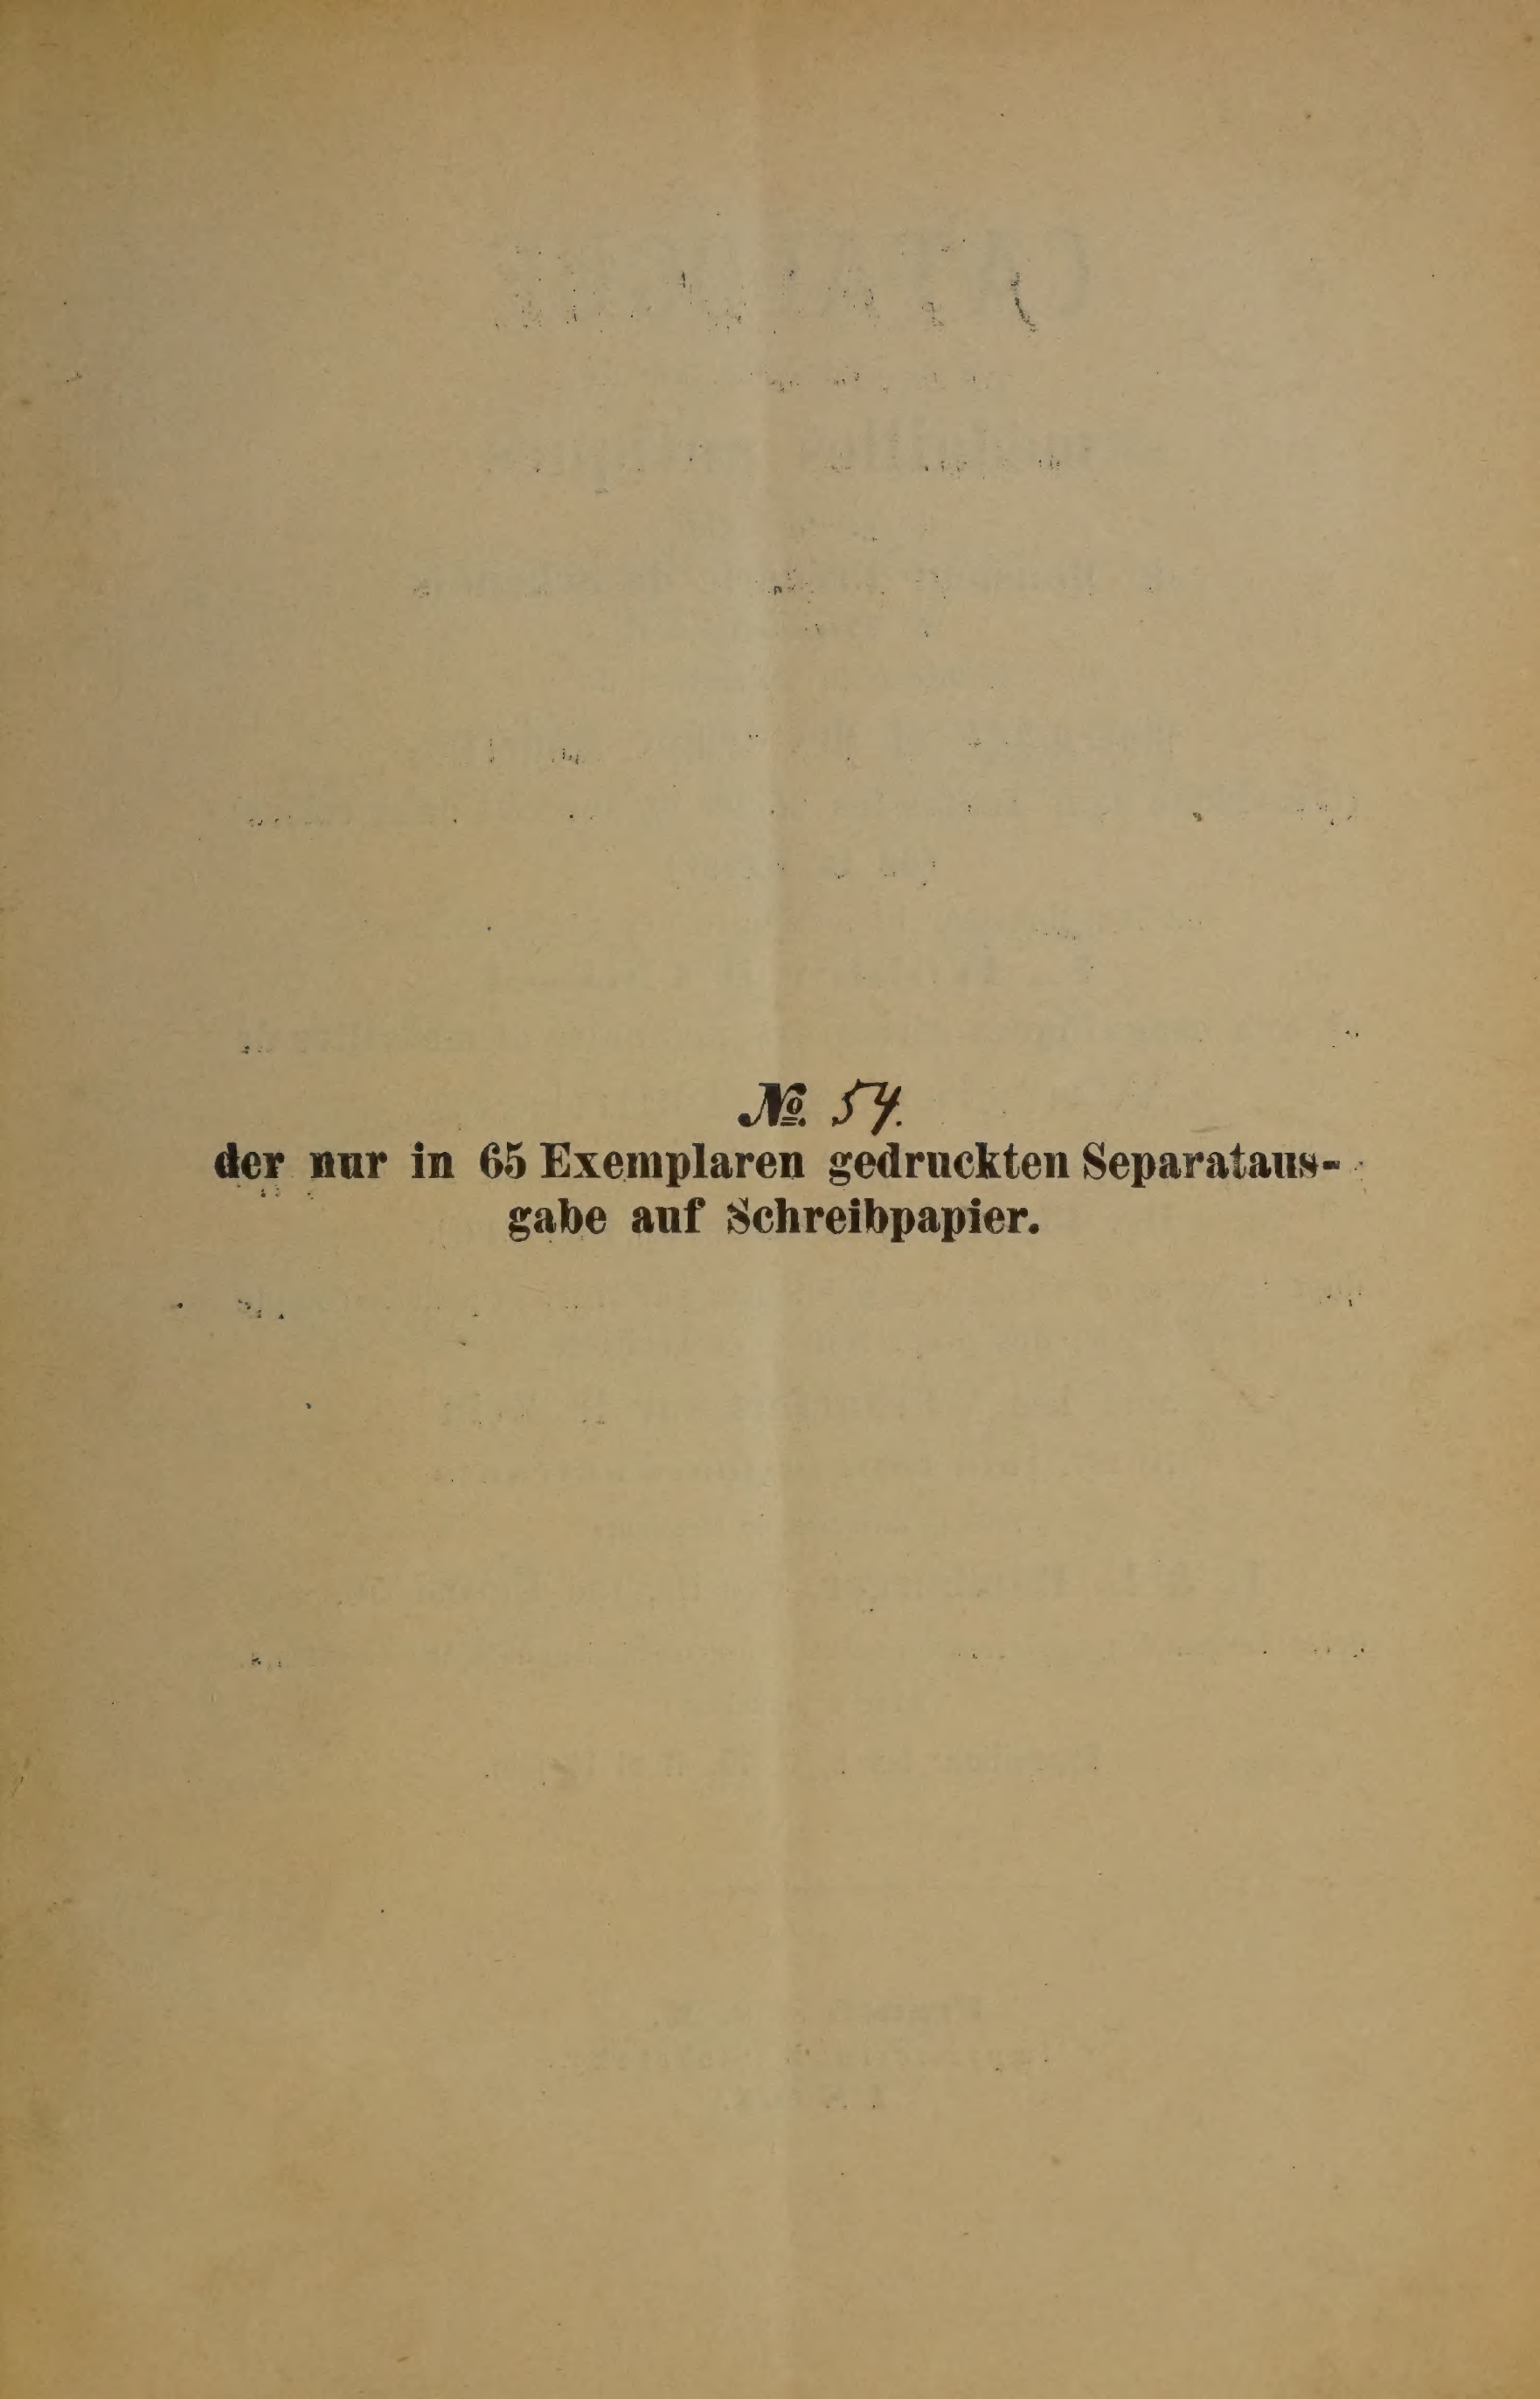 № 54.
der nur in 65 Exemplaren gedruckten Separataus-
gabe auf Schreibpapier.